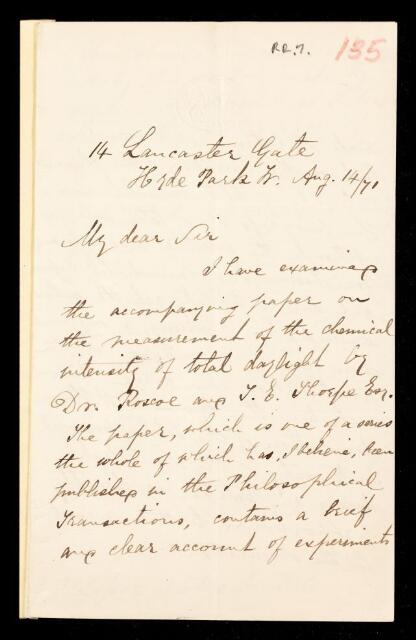 RR.7. 135
14 Lancaster Gate
Hyde Park W. Aug. 14/71
My dear Sir
I have examined
the accompanying paper on
the measurement of the chemical
intensity of total daylight by
Dr. Roscoe and T. E. Thorpe Esq.
The paper, which is one of a series
the whole of which has, I believe, been
published in the Philosophical
Transactions, contains a brief
and clear account of experiments